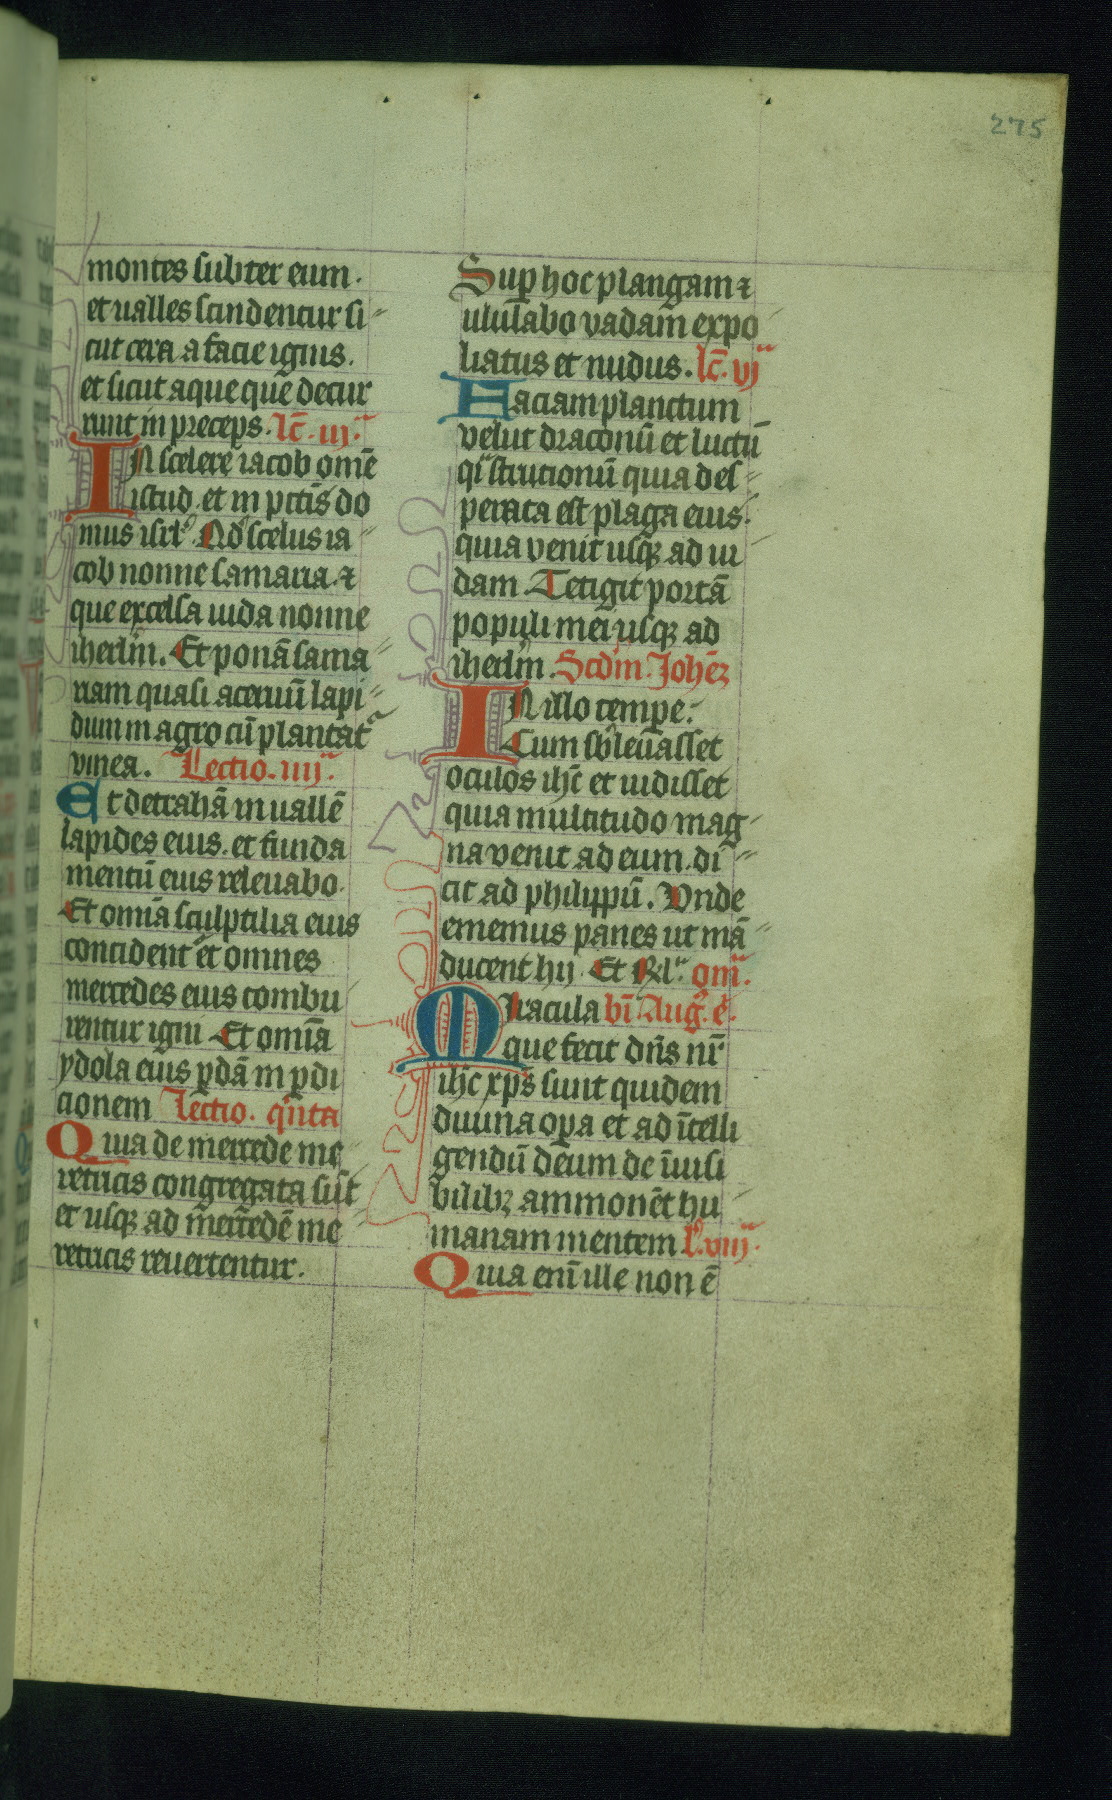 275
montes subter eum.
et ualles scindentur si-
cut cera a facie ignis.
et sicut aque que decur
runt in preceps. lc̄. iij.ᵃ
IN scelere iacob om̄e
istud. et in pctīs do
mus isrl̓. Qd̓ scelus ia
cob nonne samaria. ⁊
que excelsa iuda nonne
iherlm̄. Et ponā sama
riam quasi aceruū lapi-
dum in agro cū plantat᷑
vinea. Lectio. iiij.ᵃ
Et detrahā in uallē
lapides eius. et funda
mentū eius releuabo.
Et om̄ia sculptilia eius
concident᷑ et omnes
mercedes eius combu
rentur igni Et om̄ia
ydola eius ꝑdā in ꝑdi
cionem Lectio. qⁱnta
Quia de mercede me
retricis congregata sūt
et usqꝫ ad m̄ercedē me
retricis reuertentur.
Suꝑ hoc plangam ⁊
ululabo vadam expo
liatus et nudus. lc̄. vjᵃ
Faciam planctum
velut draconū et luctū
qⁱ strucionū quia des-
perata est plaga eius.
quia venit usqꝫ ad iu
dam Tetigit portā
populi mei usqꝫ ad
iherlm̄. Scdm̄. Johēꝫ
IN illo temꝑe.
Cum sb̓leuasset
oculos ihc̄ et uidisset
quia multitudo mag
na venit ad eum. di-
cit ad philippū. Vnde
ememus panes ut mā
ducent hij Et Rl̓ᵃ omᵃ.
Miracula bī Augᵉ. eˢ.
que fecit dn̄s nr̄
ihc̄ xp̄s sunt quidem
diuina oꝑa et ad ītelli
gendū deum de īuisi
bilibꝫ ammonēt hu
manam mentem l̓. viijᵃ.
Quia enī ille non ē